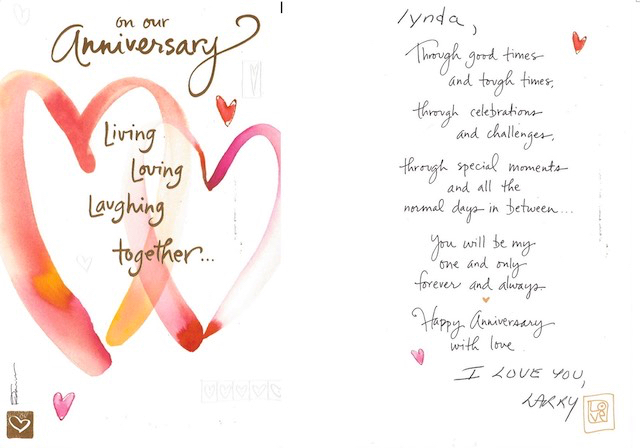 on our
Anniversary
Living
Loving
Laughing
together...
Lynda,
Through good times
and tough times,
through celebrations
and challenges,
through special moments
and all the
normal days in between...
You will be my
one and only
forever and always
Happy Anniversary
with love
I LOVE YOU,
LARRY
LOVE